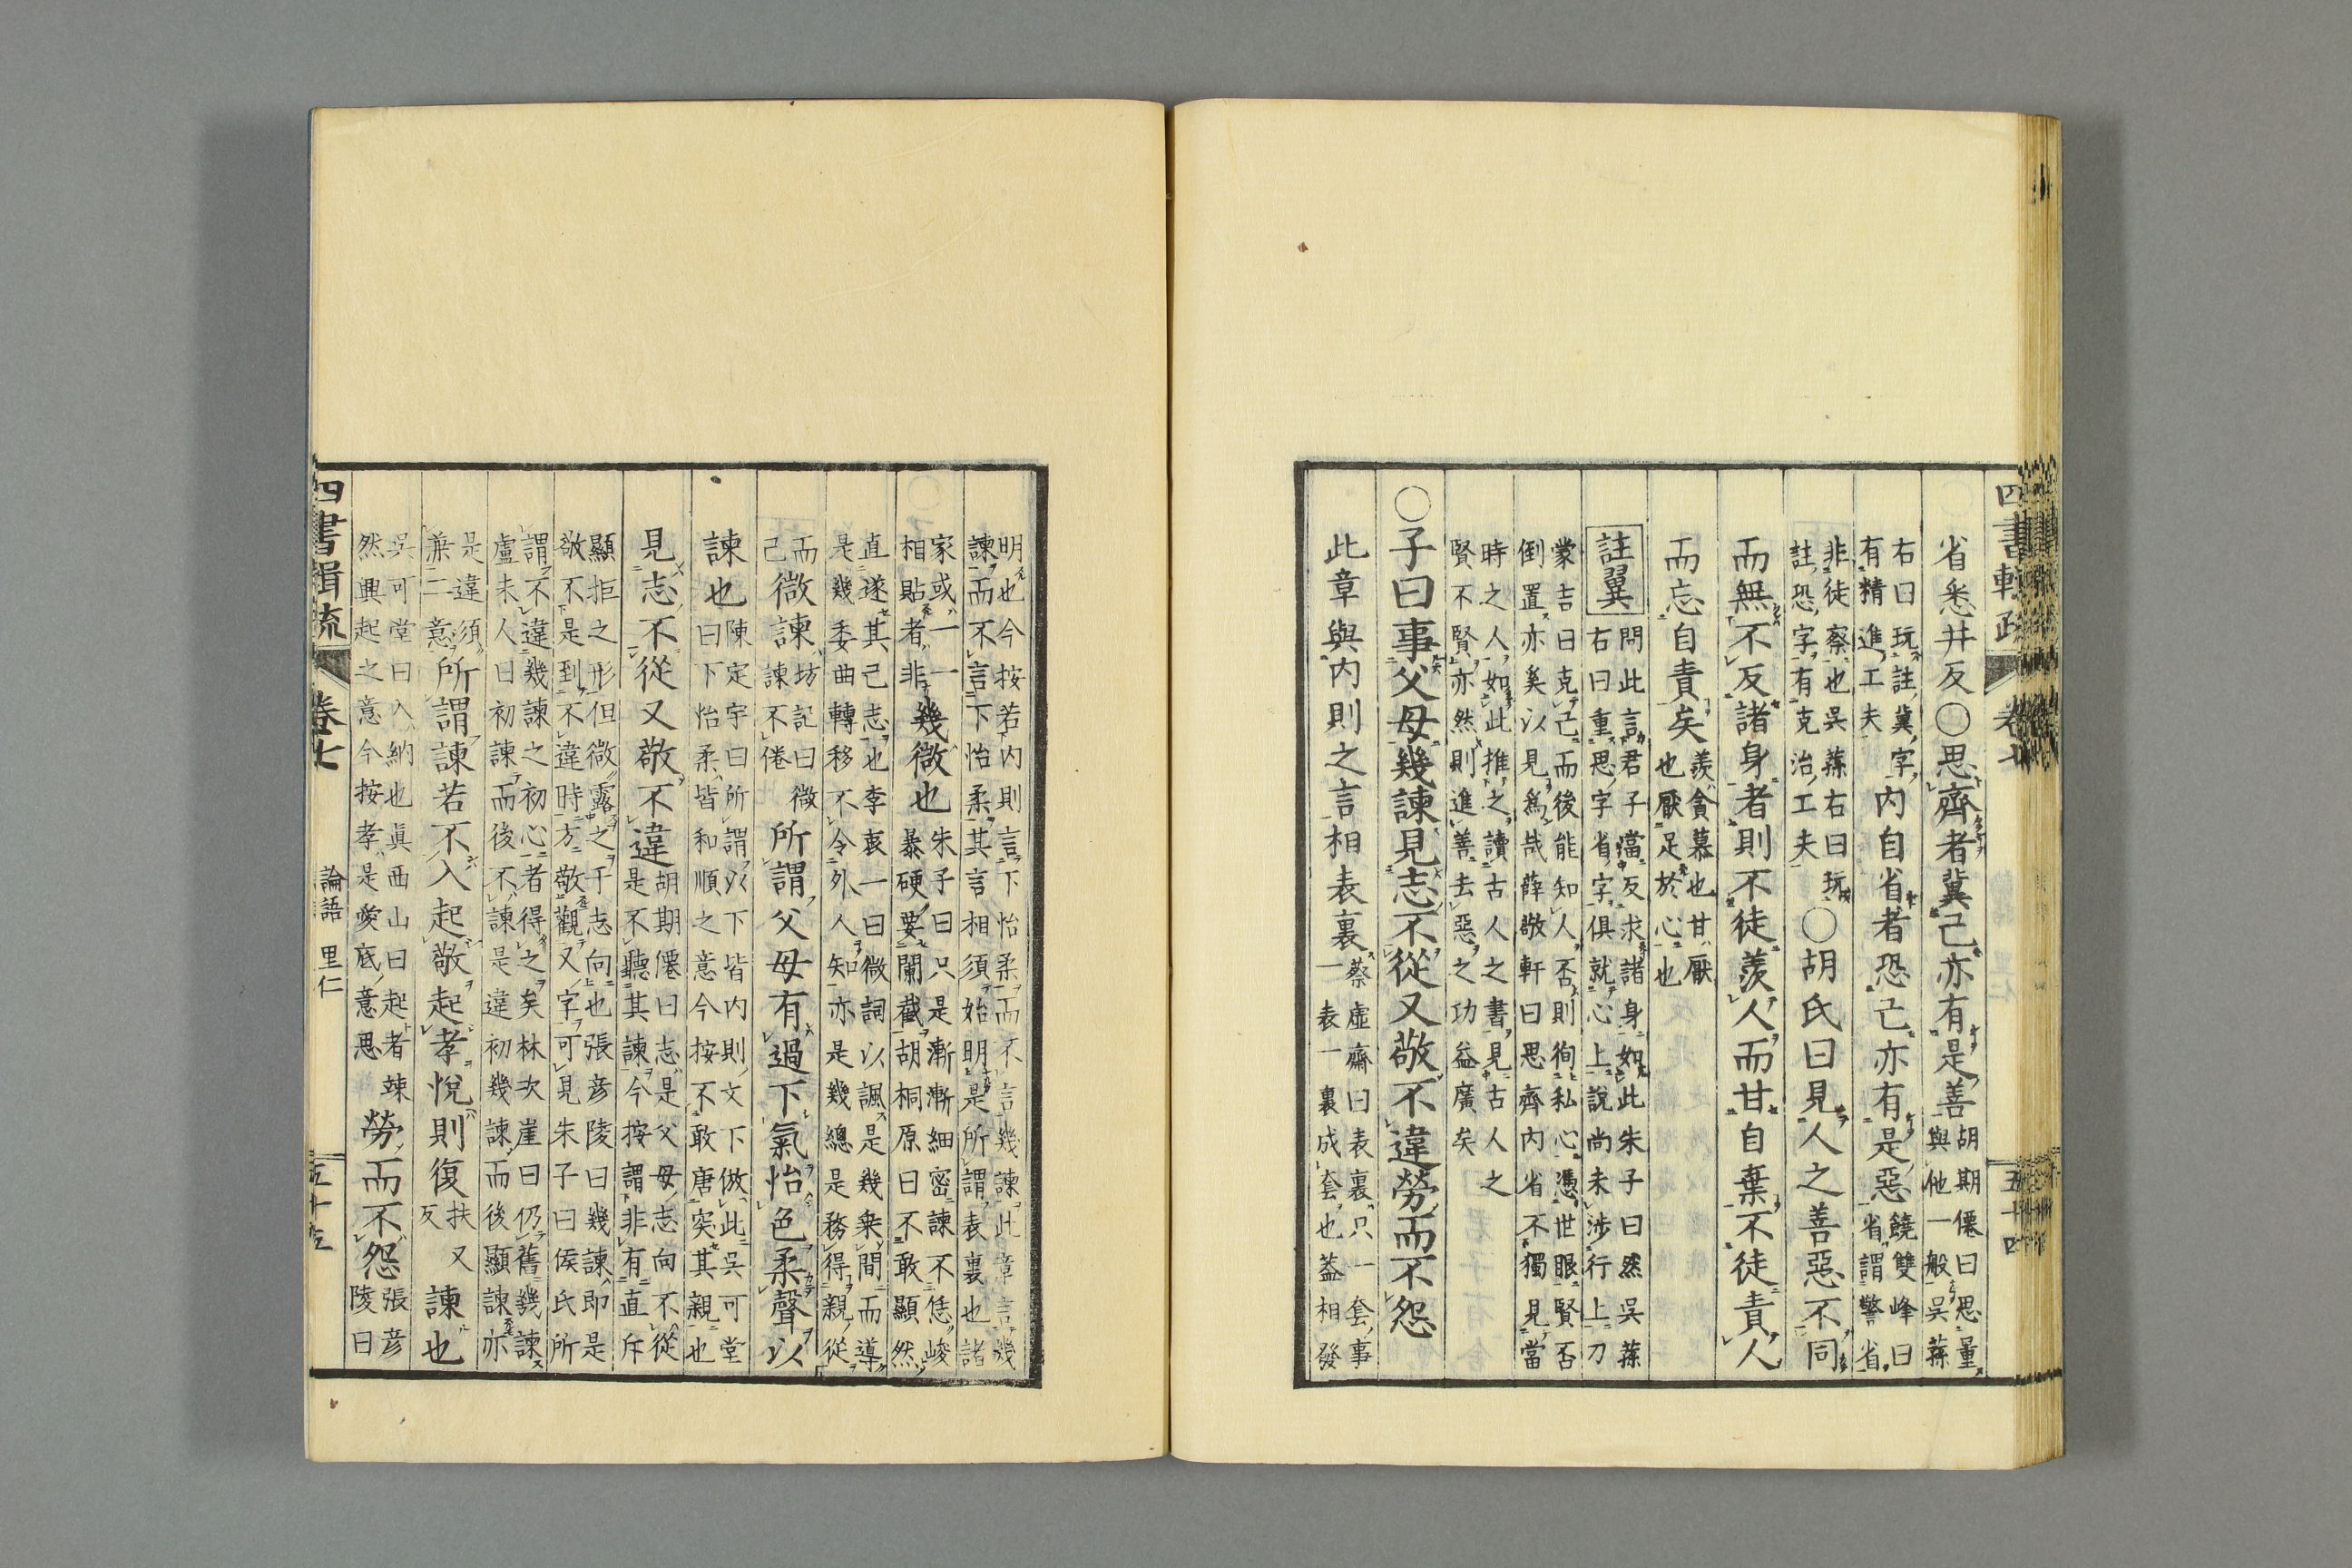 四書輯疏 卷七 五十四
省悉井反〇思齊者冀己亦有是善胡期僊曰思量
與他一般吳蓀
右曰玩註冀字内自省者恐己亦有是惡饒雙峰曰
有精進工夫省謂警省
非徒察也吳蓀右曰玩
註恐字有克治工夫〇胡氏曰見人之善惡不同
而無不反諸身者則不徒羨人而甘自棄不徒責人
而忘自責矣羨貪慕也甘厭
也厭足於心也
註翼問此言君子當反求諸身如此朱子曰然吳蓀
右曰重思字省字俱就心上說尚未涉行上刀
蒙吉曰克己而後能知人否則徇私心憑世眼賢否
倒置亦奚以見為哉薛敬軒曰思齊内省不獨見當
時之人如此推之讀古人之書見古人之
賢不賢亦然則進善去惡之功益廣矣
〇子曰事父母幾諫見志不從又敬不違勞而不怨
此章與内則之言相表裏蔡虛齋曰表裏只一套事
一表一裏成套也蓋相發
明也今按若内則言下怡柔而不言幾諫此章言幾
諫而不言下怡柔其言相須始明是所謂表裏也諸
家或一一
相貼者非幾微也朱子曰只是漸漸細密諫不恁峻
暴硬要闌截胡桐原曰不敢顯然
直遂其己志也李衷一曰微詞以諷是幾乗間而導
是幾委曲轉移不令外人知亦是幾總是務得親從
而
己微諫坊記曰微
諫不倦所謂父母有過下氣怡色柔聲以
諫也陳定宇曰所謂以下皆内則文下倣此吳可堂
曰下怡柔皆和順之意今按不敢唐突其親也
見志不從又敬不違胡期僊曰志是父母志向不從
是不聽其諫今按謂非有直斥
顯拒之形但微露之于志向也張彥陵曰幾諫即是
敬不是到不違時方敬觀又字可見朱子曰侯氏所
謂不違幾諫之初心者得之矣林次崖曰仍舊幾諫
盧未人曰初諫而後不諫是違初幾諫而後顯諫亦
是違須
兼二意所謂諫若不入起敬起孝悅則復扶又
反諫也
吳可堂曰入納也眞西山曰起者竦
然興起之意今按孝是愛底意思勞而不怨張彥
陵曰
四書輯疏 卷七 論語 里仁 五十五